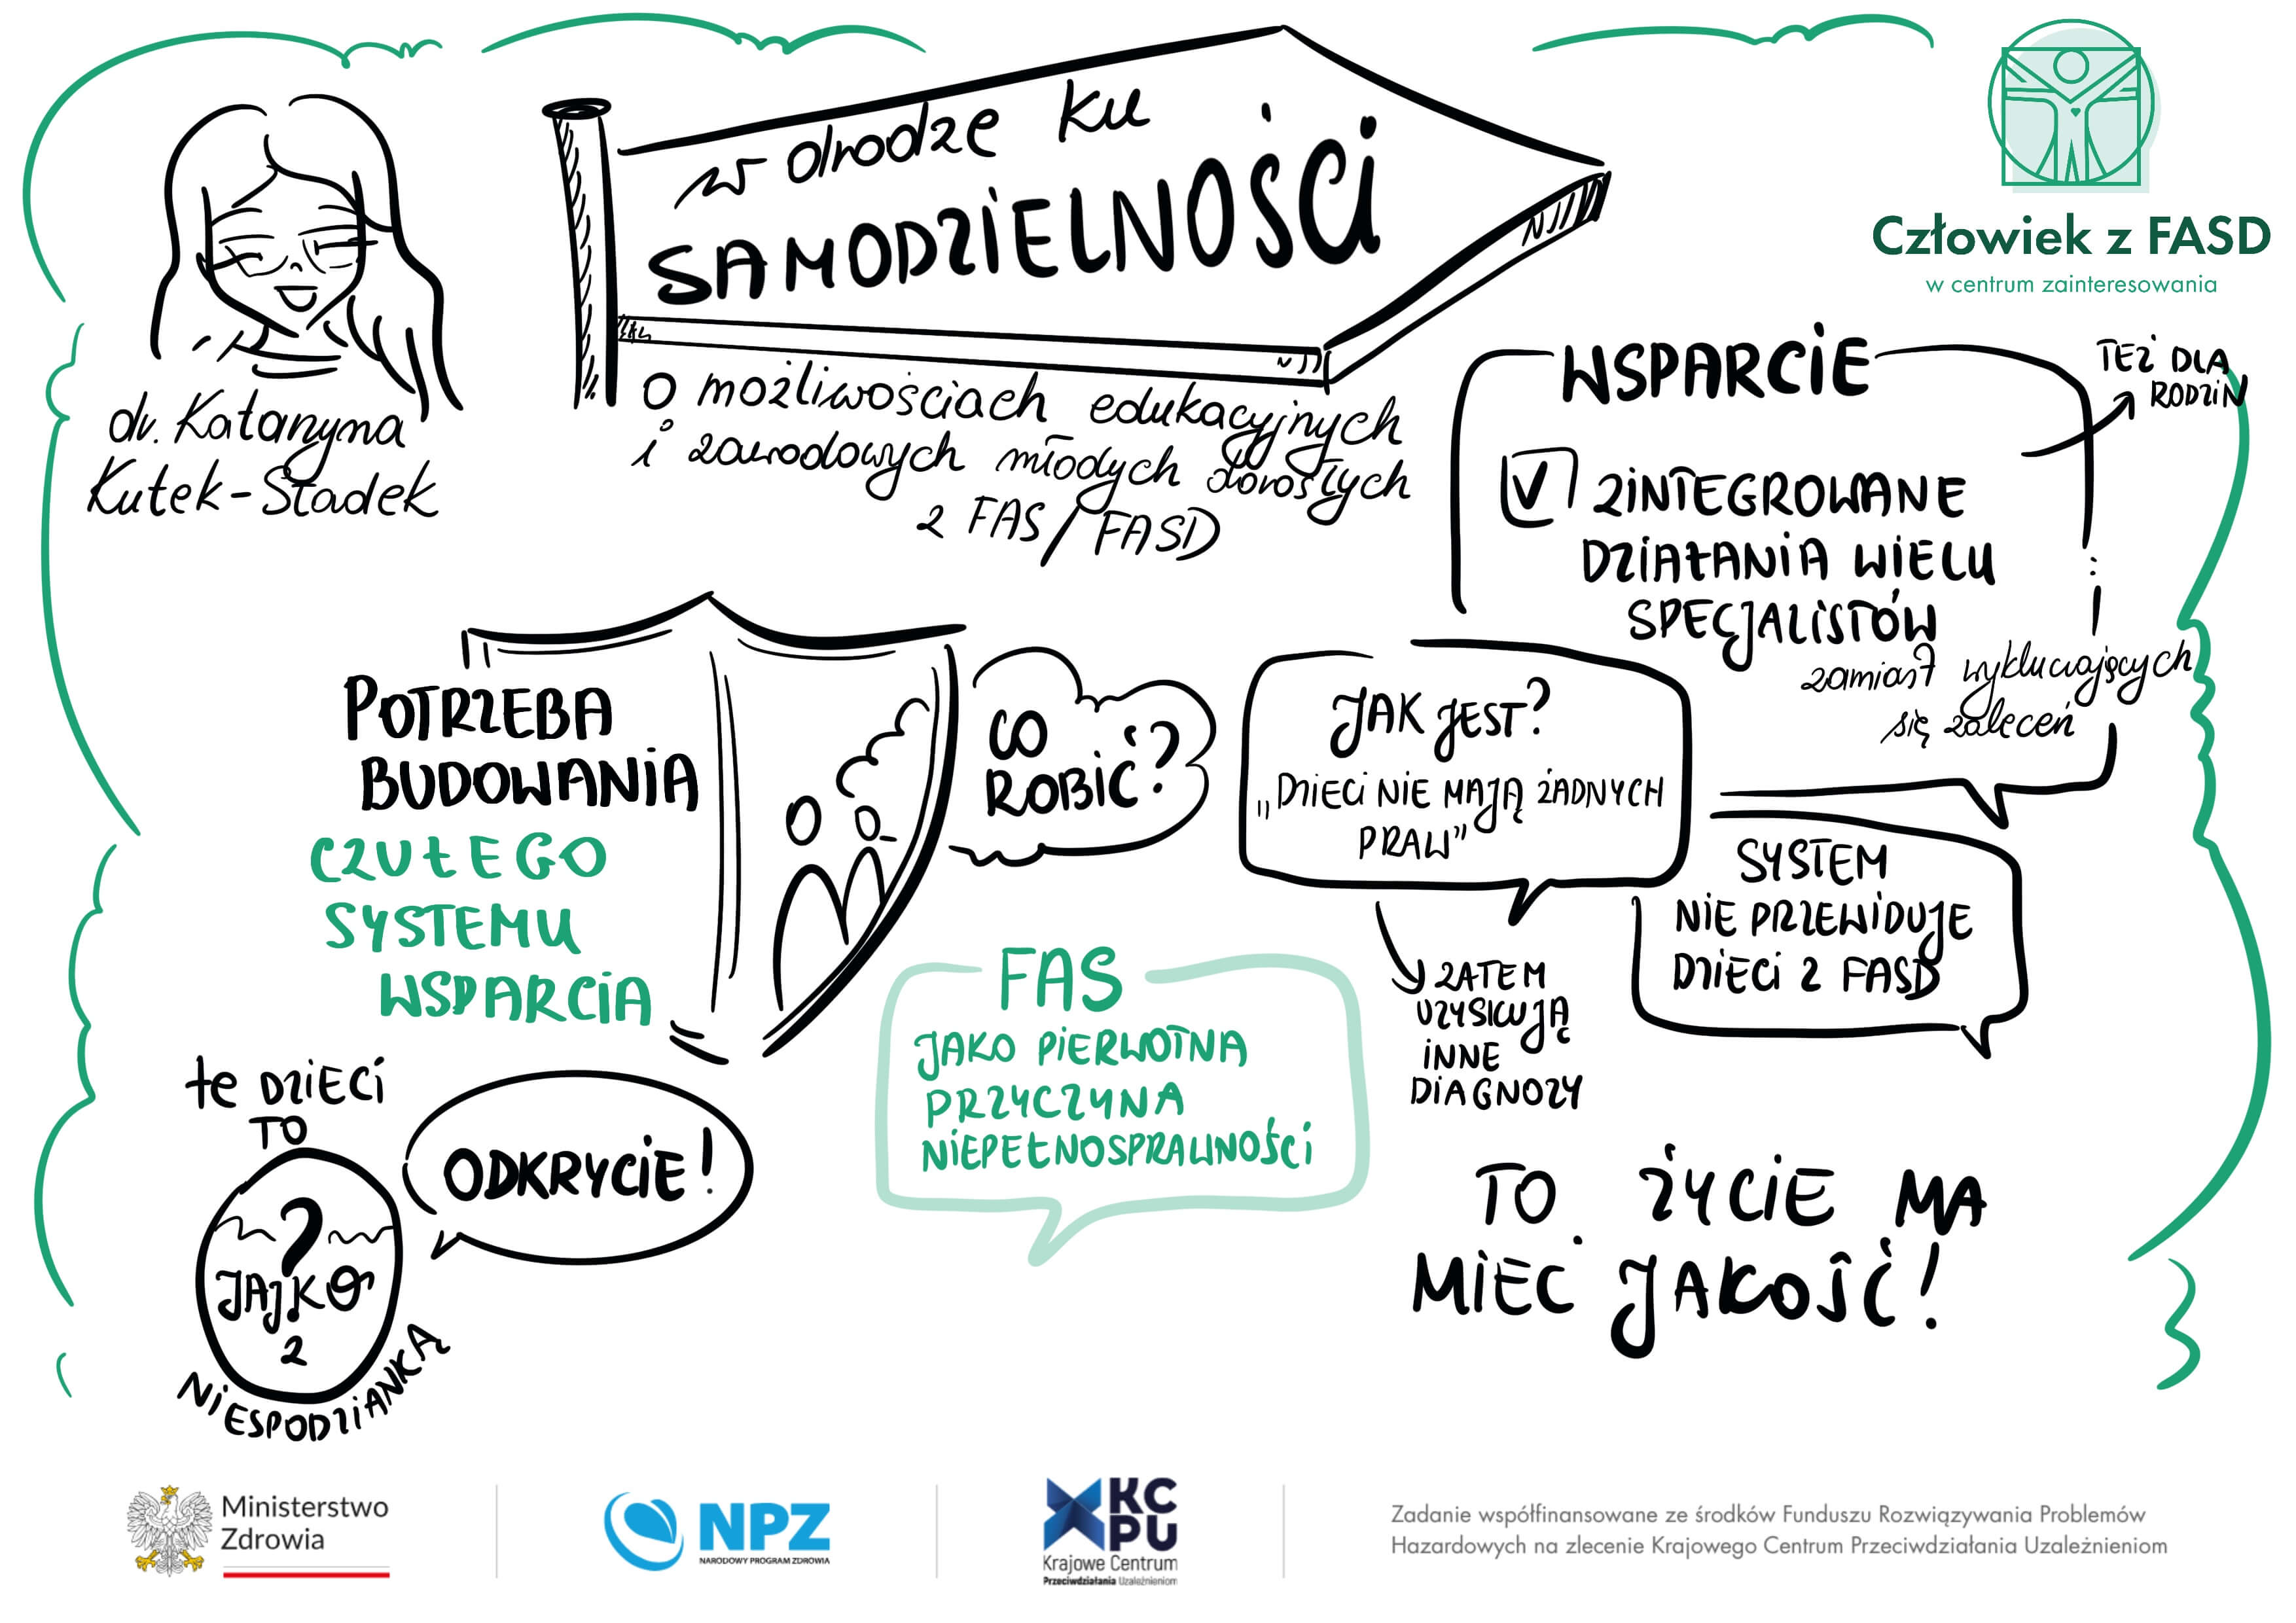 w drodze ku
SAMODZIELNOŚCI
o możliwościach edukacyjnych
i zawodowych młodych dorosłych
z FAS/FASD
dr. Katarzyna
Kutek-Sładek
Człowiek z FASD
w centrum zainteresowania
WSPARCIE
TEŻ DLA
RODZIN
V ZINTEGROWANE
DZIAŁANIA WIELU
SPECJALISTÓW
zamiast wykluczających
się zaleceń
POTRZEBA
BUDOWANIA
CZUŁEGO
SYSTEMU
WSPARCIA
CO
ROBIĆ?
JAK JEST?
„DZIECI NIE MAJĄ ŻADNYCH
PRAW"
SYSTEM
NIE PRZEWIDUJE
DZIECI Z FASD
ZATEM
UZYSKUJĄ
INNE
DIAGNOZY
FAS
JAKO PIERWOTNA
PRZYCZYNA
NIEPEŁNOSPRAWNOŚCI
te DZIECI
TO
?
JAJKO
Z
NIESPODZIANKĄ
ODKRYCIE!
TO ŻYCIE MA
MIEĆ JAKOŚĆ!
Ministerstwo
Zdrowia
NPZ
NARODOWY PROGRAM ZDROWIA
KC
PU
Krajowe Centrum
Przeciwdziałania Uzależnieniom
Zadanie współfinansowane ze środków Funduszu Rozwiązywania Problemów
Hazardowych na zlecenie Krajowego Centrum Przeciwdziałania Uzależnieniom